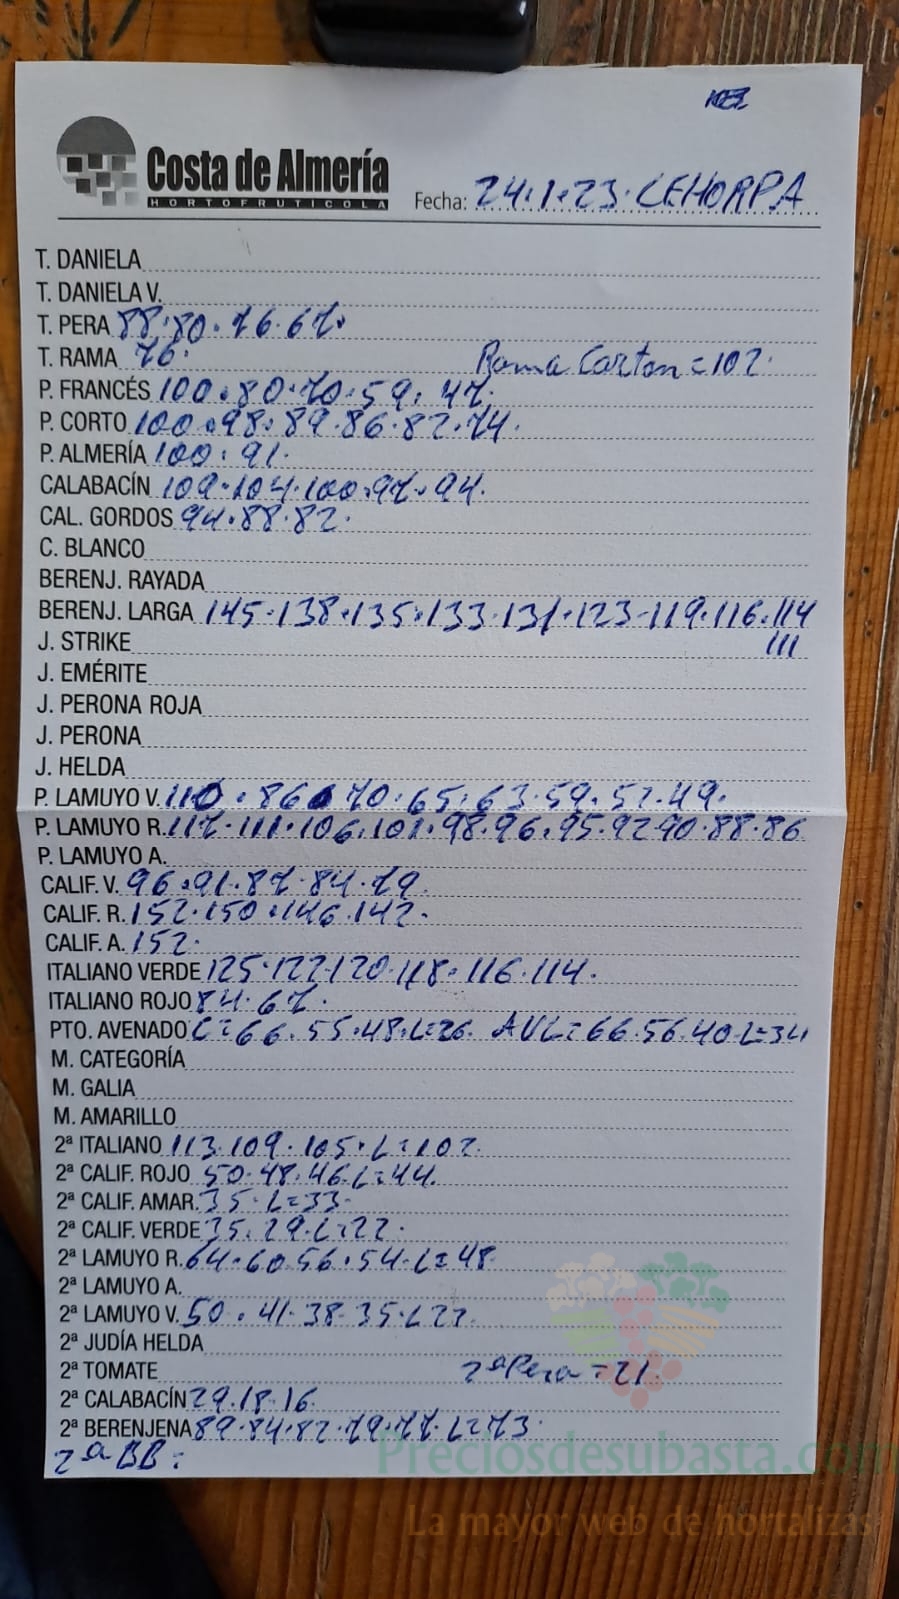 Costa de Almería
HORTOFRUTICOLA
Fecha: 24.1.23. CEHORPA
T. DANIELA
T. DANIELA V.
T. PERA 88.80.76.67.
T. RAMA 76. Rama Carton = 102.
P. FRANCÉS 100.80.70.59.47.
P. CORTO 100.98.89.86.82.74.
P. ALMERÍA 100.91.
CALABACÍN 109.104.100.97.94.
CAL. GORDOS 94.88.82.
C. BLANCO
BERENJ. RAYADA
BERENJ. LARGA 145.138.135.133.131.123-119.116.114
J. STRIKE 111
J. EMÉRITE
J. PERONA ROJA
J. PERONA
J. HELDA
P. LAMUYO V. 110.86.70.65.63.59.52.49.
P. LAMUYO R. 117.111.106.101.98.96.95.92.90.88.86
P. LAMUYO A.
CALIF. V. 96.91.87.84.79.
CALIF. R. 152.150.146.142.
CALIF. A. 152.
ITALIANO VERDE 125.122.120.118.116.114.
ITALIANO ROJO 84.67.
PTO. AVENADO C=66.55.48.L=26. AVL=66.56.40.L=34
M. CATEGORÍA
M. GALIA
M. AMARILLO
2ª ITALIANO 113.109.105.L=102.
2ª CALIF. ROJO 50.48.46.L=44.
2ª CALIF. AMAR. 35.L=33.
2ª CALIF. VERDE 35.29.L=22.
2ª LAMUYO R. 64.60.56.54.L=48.
2ª LAMUYO A.
2ª LAMUYO V. 50.41.38.35.L27.
2ª JUDÍA HELDA
2ª TOMATE 2ª Pera = 21.
2ª CALABACÍN 29.18.16.
2ª BERENJENA 89.84.82.79.77.L=73.
2ª BB:
Preciosdesubasta.com
La mayor web de hortalizas